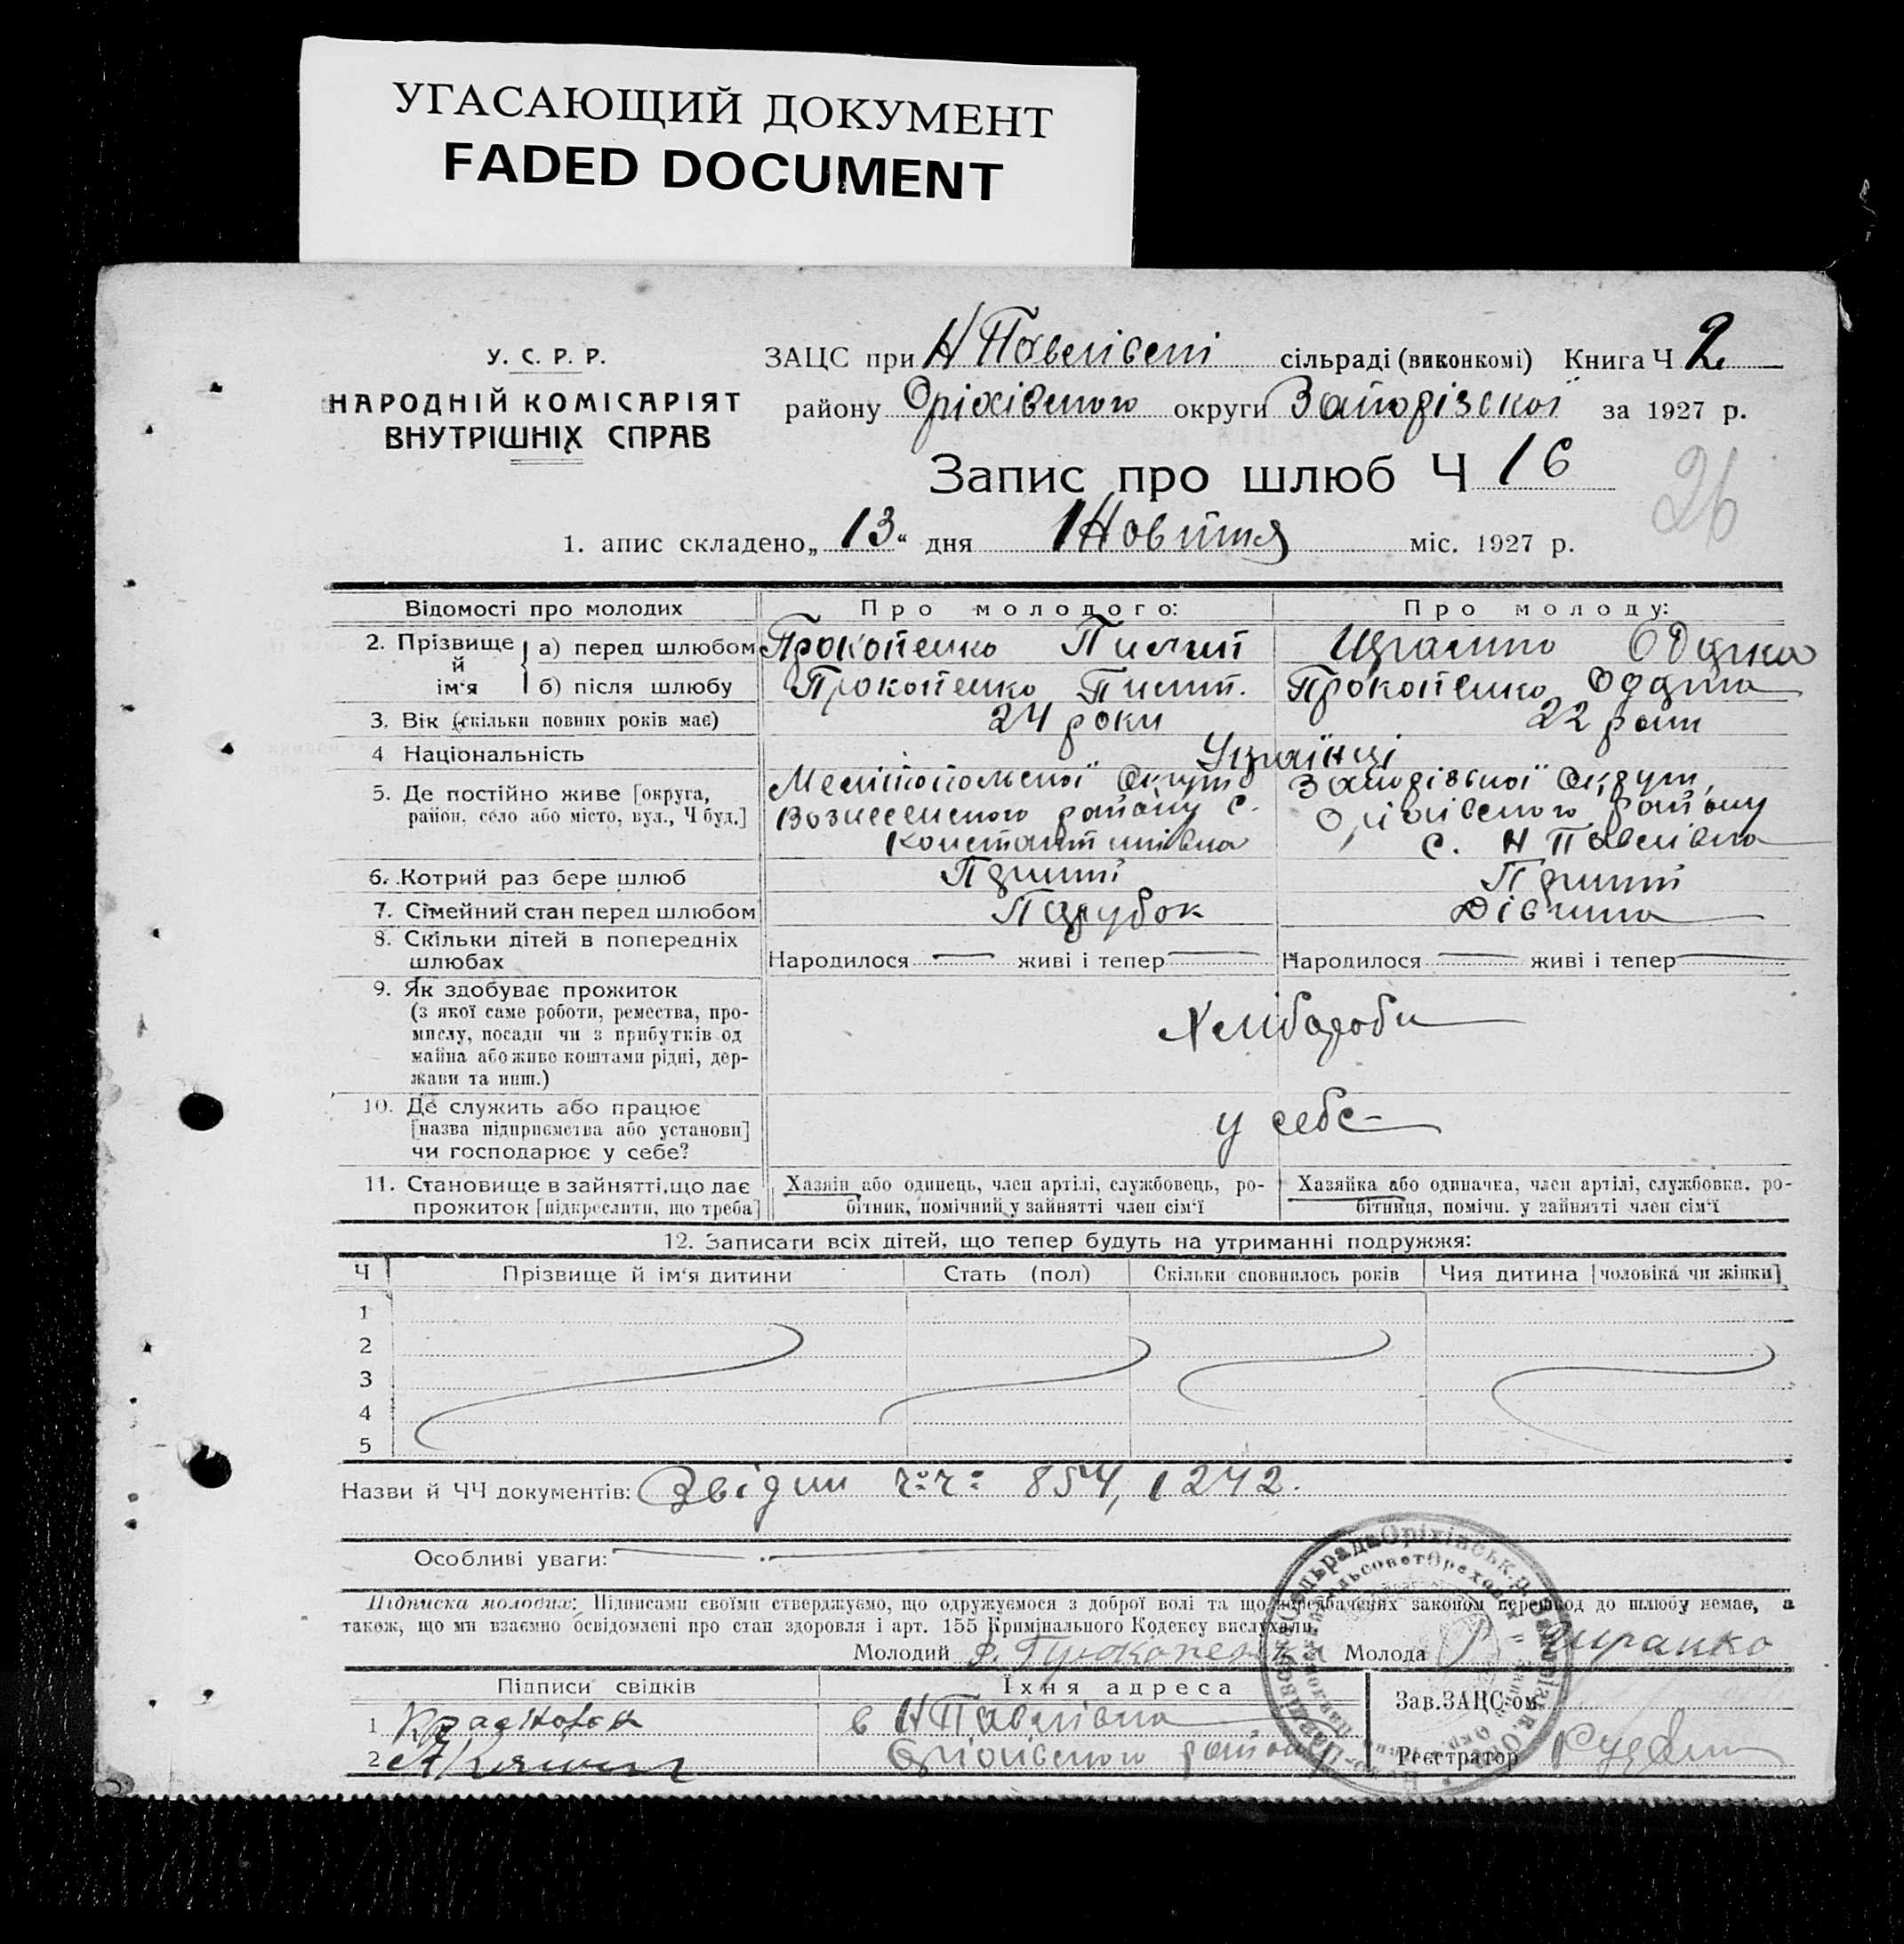 УГАСАЮЩИЙ ДОКУМЕНТ
FADED DOCUMENT
У. С. Р. Р.
НАРОДНІЙ КОМІСАРІЯТ
ВНУТРІШНІХ СПРАВ
ЗАЦС при Н Павлівскі сільраді (виконкомі) Книга Ч 2
району Оріхівского округи Запорізскої за 1927 р.
Запис про шлюб Ч 16
26
1. апис складено „13“ дня Жовтня міс. 1927 р.
Відомості про молодих Про молодого: Про молоду:
2. Прізвище й ім‘я а) перед шлюбом Прокопенко Пилип
б) після шлюбу Прокопенко Пилип. Прокопенко
3. Вік (скільки повних років має) 24 роки 22 роки
4 Національність Українці
5. Де постійно живе [округа, район, село або місто, вул., Ч буд.] Мелітопольскої Округи Запорізької Округи,
Вознесенского району с. Оріхівского району
Константинівка с. Н Павлівка
6. Котрий раз бере шлюб Перший Перший
7. Сімейний стан перед шлюбом Парубок Дівчина
8. Скільки дітей в попередніх шлюбах Народилося — живі і тепер — Народилося — живі і тепер —
9. Як здобуває прожиток
(з якої саме роботи, ремества, про-
мислу, посади чи з прибутків од
майна або живе коштами рідні, дер-
жави та инш.)
Хлібороби
10. Де служить або працює
[назва підприємства або установи]
чи господарює у себе?
у себе
11. Становище в зайнятті, що дає
прожиток [підкреслити, що треба]
Хазяін або одинець, член артілі, службовець, ро-
бітник, помічний у зайнятті член сім‘ї
Хазяйка або одиначка, член артілі, службовка, ро-
бітниця, помічн. у зайнятті член сім‘ї
12. Записати всіх дітей, що тепер будуть на утриманні подружжя:
Ч Прізвище й ім‘я дитини Стать (пол) Скільки сповнилось років Чия дитина [чоловіка чи жінки]
1
2
3
4
5
Назви й ЧЧ документів: Звідки ч:ч: 854, 1242.
Особливі уваги:
Підписка молодих: Підписами своїми стверджуємо, що одружуємося з доброї волі та що передбачених законом перешкод до шлюбу немає, а
також, що ми взаємно освідомлені про стан здоровля і арт. 155 Кримінального Кодексу вислухали.
Молодий Прокопенко Молода
Підписи свідків Їхня адреса Зав. ЗАЦС-ом
1 в Н Павлівка
2 Оріхівского району Реєстратор